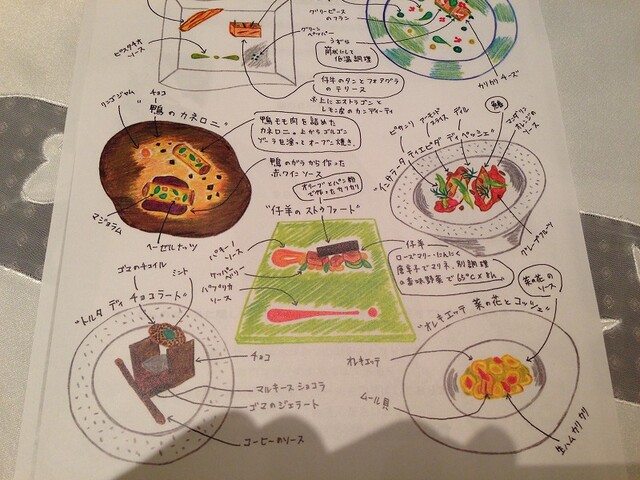 グリーンピース
のフラン
グリーン
ペッパー
ピスタチオ
ソース
うずら
筒状にして
低温調理
カリカリチーズ
仔牛のタンとフォアグラ
のテリーヌ
※上にエストラゴンと
レモン皮のカンディーティ
リンゴジャム
チョコ
"鴨のカネロニ"
鴨モモ肉を詰めた
カネロニ。上からゴルゴン
ゾーラを塗ってオーブン焼き。
鴨のガラから作った
赤ワインソース
マジョラム
ヘーゼルナッツ
ピサンリ
アーモンド
スライス
ディル
マンダリン
オレンジの
ソース
"インサラータ ティエピダ ディ ペッシェ"
グレープフルーツ
オリーブとパン粉
で作ったカリカリ
"仔羊のストゥファート"
バキーノ
ソース
ケッパー
ベリー
パプリカ
ソース
仔羊
ローズマリー・にんにく
唐辛子でマリネ、別調理
の香味野菜で65℃×8h
ゴマのチュイル
ミント
"トルタ ディ チョコラート"
チョコ
マルキーズショコラ
ゴマのジェラート
コーヒーのソース
菜の花
のソース
"オレキエッテ 菜の花とコッツェ"
オレキエッテ
ムール貝
生ハムカリカリ